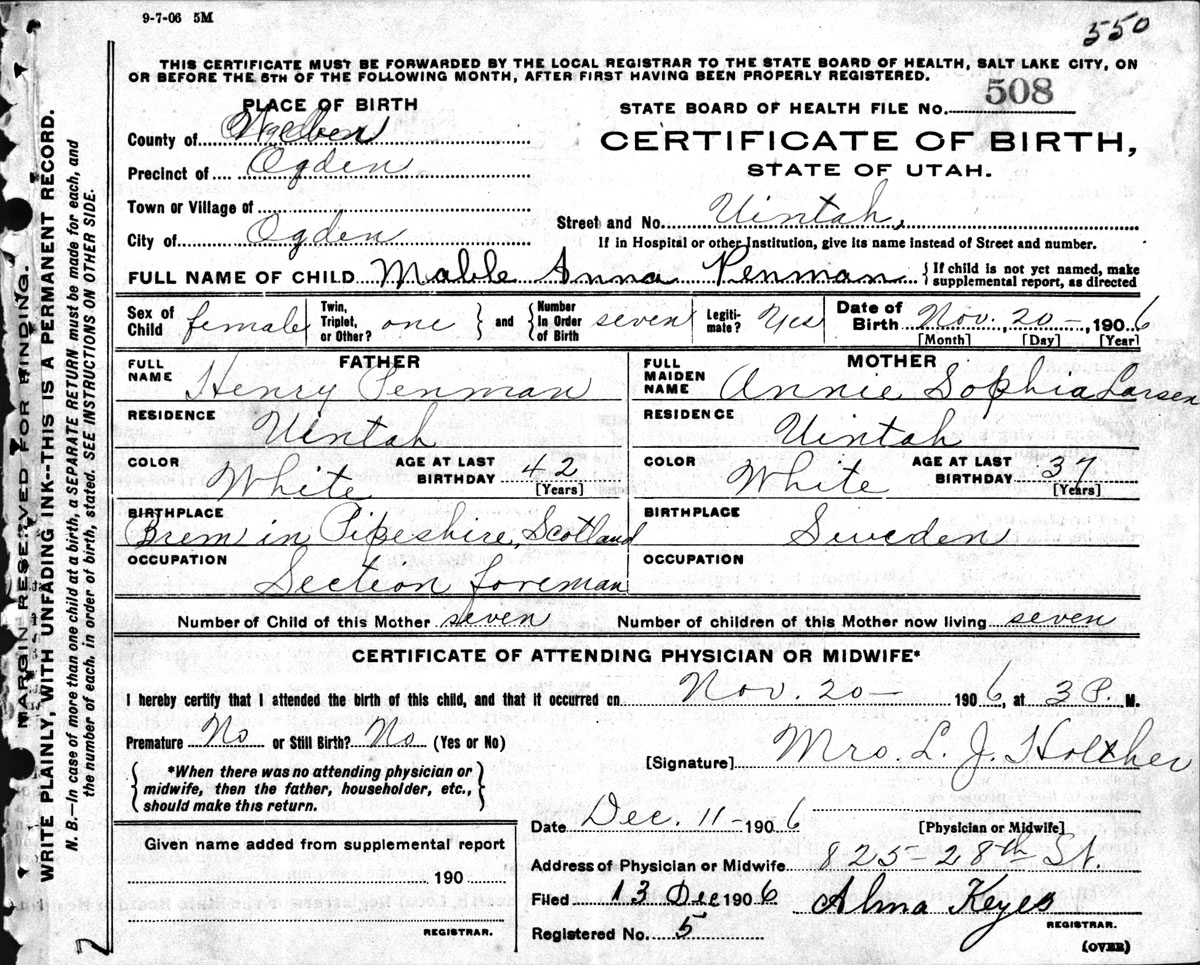 9-7-06 5M
550
THIS CERTIFICATE MUST BE FORWARDED BY THE LOCAL REGISTRAR TO THE STATE BOARD OF HEALTH, SALT LAKE CITY, ON
OR BEFORE THE 5TH OF THE FOLLOWING MONTH, AFTER FIRST HAVING BEEN PROPERLY REGISTERED.
PLACE OF BIRTH
County of Weber
Precinct of Ogden
Town or Village of
City of Ogden
STATE BOARD OF HEALTH FILE No. 508
CERTIFICATE OF BIRTH,
STATE OF UTAH.
Street and No. Uintah,
If in Hospital or other Institution, give its name instead of Street and number.
FULL NAME OF CHILD Mable Anna Penman { If child is not yet named, make
supplemental report, as directed
Sex of Child female Twin, Triplet, or Other? one } and { Number In Order of Birth seven Legiti-mate? Yes Date of Birth Nov. 20-, 1906
[Month] [Day] [Year]
FATHER
FULL NAME Henry Penman
RESIDENCE Uintah
COLOR White AGE AT LAST BIRTHDAY 42
[Years]
BIRTHPLACE Brem in Pipeshire, Scotland
OCCUPATION Section foreman
MOTHER
FULL MAIDEN NAME Annie Sophia Larsen
RESIDENCE Uintah
COLOR White AGE AT LAST BIRTHDAY 37
[Years]
BIRTHPLACE Sweden
OCCUPATION
Number of Child of this Mother seven Number of children of this Mother now living seven
CERTIFICATE OF ATTENDING PHYSICIAN OR MIDWIFE*
I hereby certify that I attended the birth of this child, and that it occurred on Nov. 20- 1906, at 3 P. M.
Premature No or Still Birth? No (Yes or No)
{ *When there was no attending physician or
midwife, then the father, householder, etc.,
should make this return. }
[Signature] Mrs. L. J. Holther
[Physician or Midwife]
Date Dec. 11- 1906
Address of Physician or Midwife 825-28th St.
Filed 13 Dec 1906 Alma Keyes
REGISTRAR.
Registered No. 5
(OVER)
Given name added from supplemental report
190
REGISTRAR.
7
MARGIN RESERVED FOR BINDING.
WRITE PLAINLY, WITH UNFADING INK--THIS IS A PERMANENT RECORD.
N. B.—In case of more than one child at a birth, a SEPARATE RETURN must be made for each, and
the number of each, in order of birth, stated. SEE INSTRUCTIONS ON OTHER SIDE.